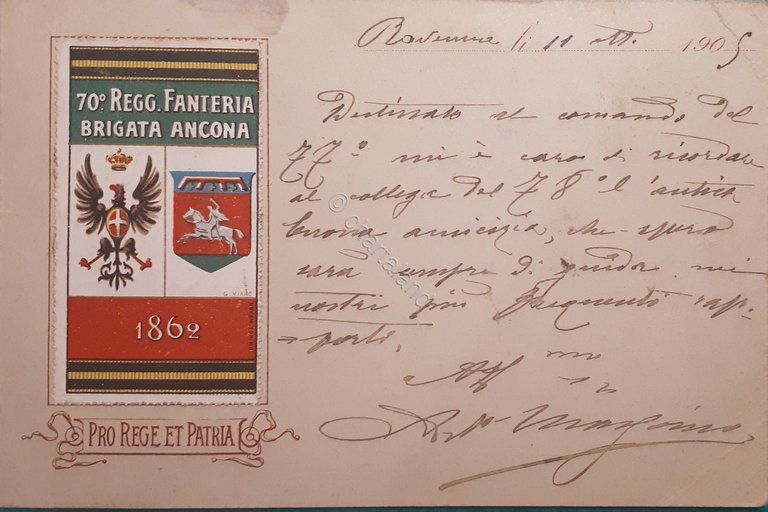 70º REGG. FANTERIA
BRIGATA ANCONA
G. VIANO
1862
PRO REGE ET PATRIA
Ravenna li 11 ott. 1905
Destinato al comando del
77º mi è caro di ricordare
al collega del 78º l'antica
buona amicizia, che spero
sarà sempre di guida nei
nostri più frequenti rap-
porti.
Aff mo